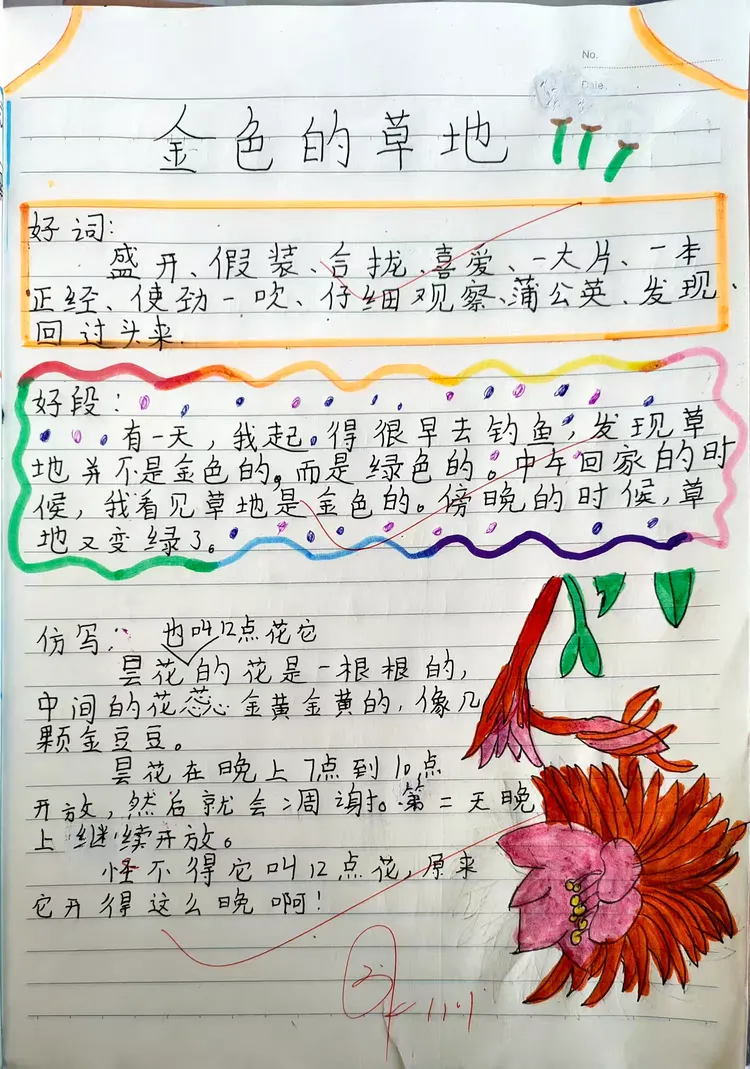 No.
Date.
金色的草地
好词:
盛开、假装、合拢、喜爱、一大片、一本
正经、使劲一吹、仔细观察、蒲公英、发现、
回过头来.
好段:
有一天,我起得很早去钓鱼,发现草
地并不是金色的,而是绿色的。中午回家的时
候,我看见草地是金色的。傍晚的时候,草
地又变绿了。
仿写:
也叫12点花它
昙花的花是一根根的,
中间的花蕊金黄金黄的,像几
颗金豆豆。
昙花在晚上7点到10点
开放,然后就会凋谢。第二天晚
上继续开放。
怪不得它叫12点花,原来
它开得这么晚啊!